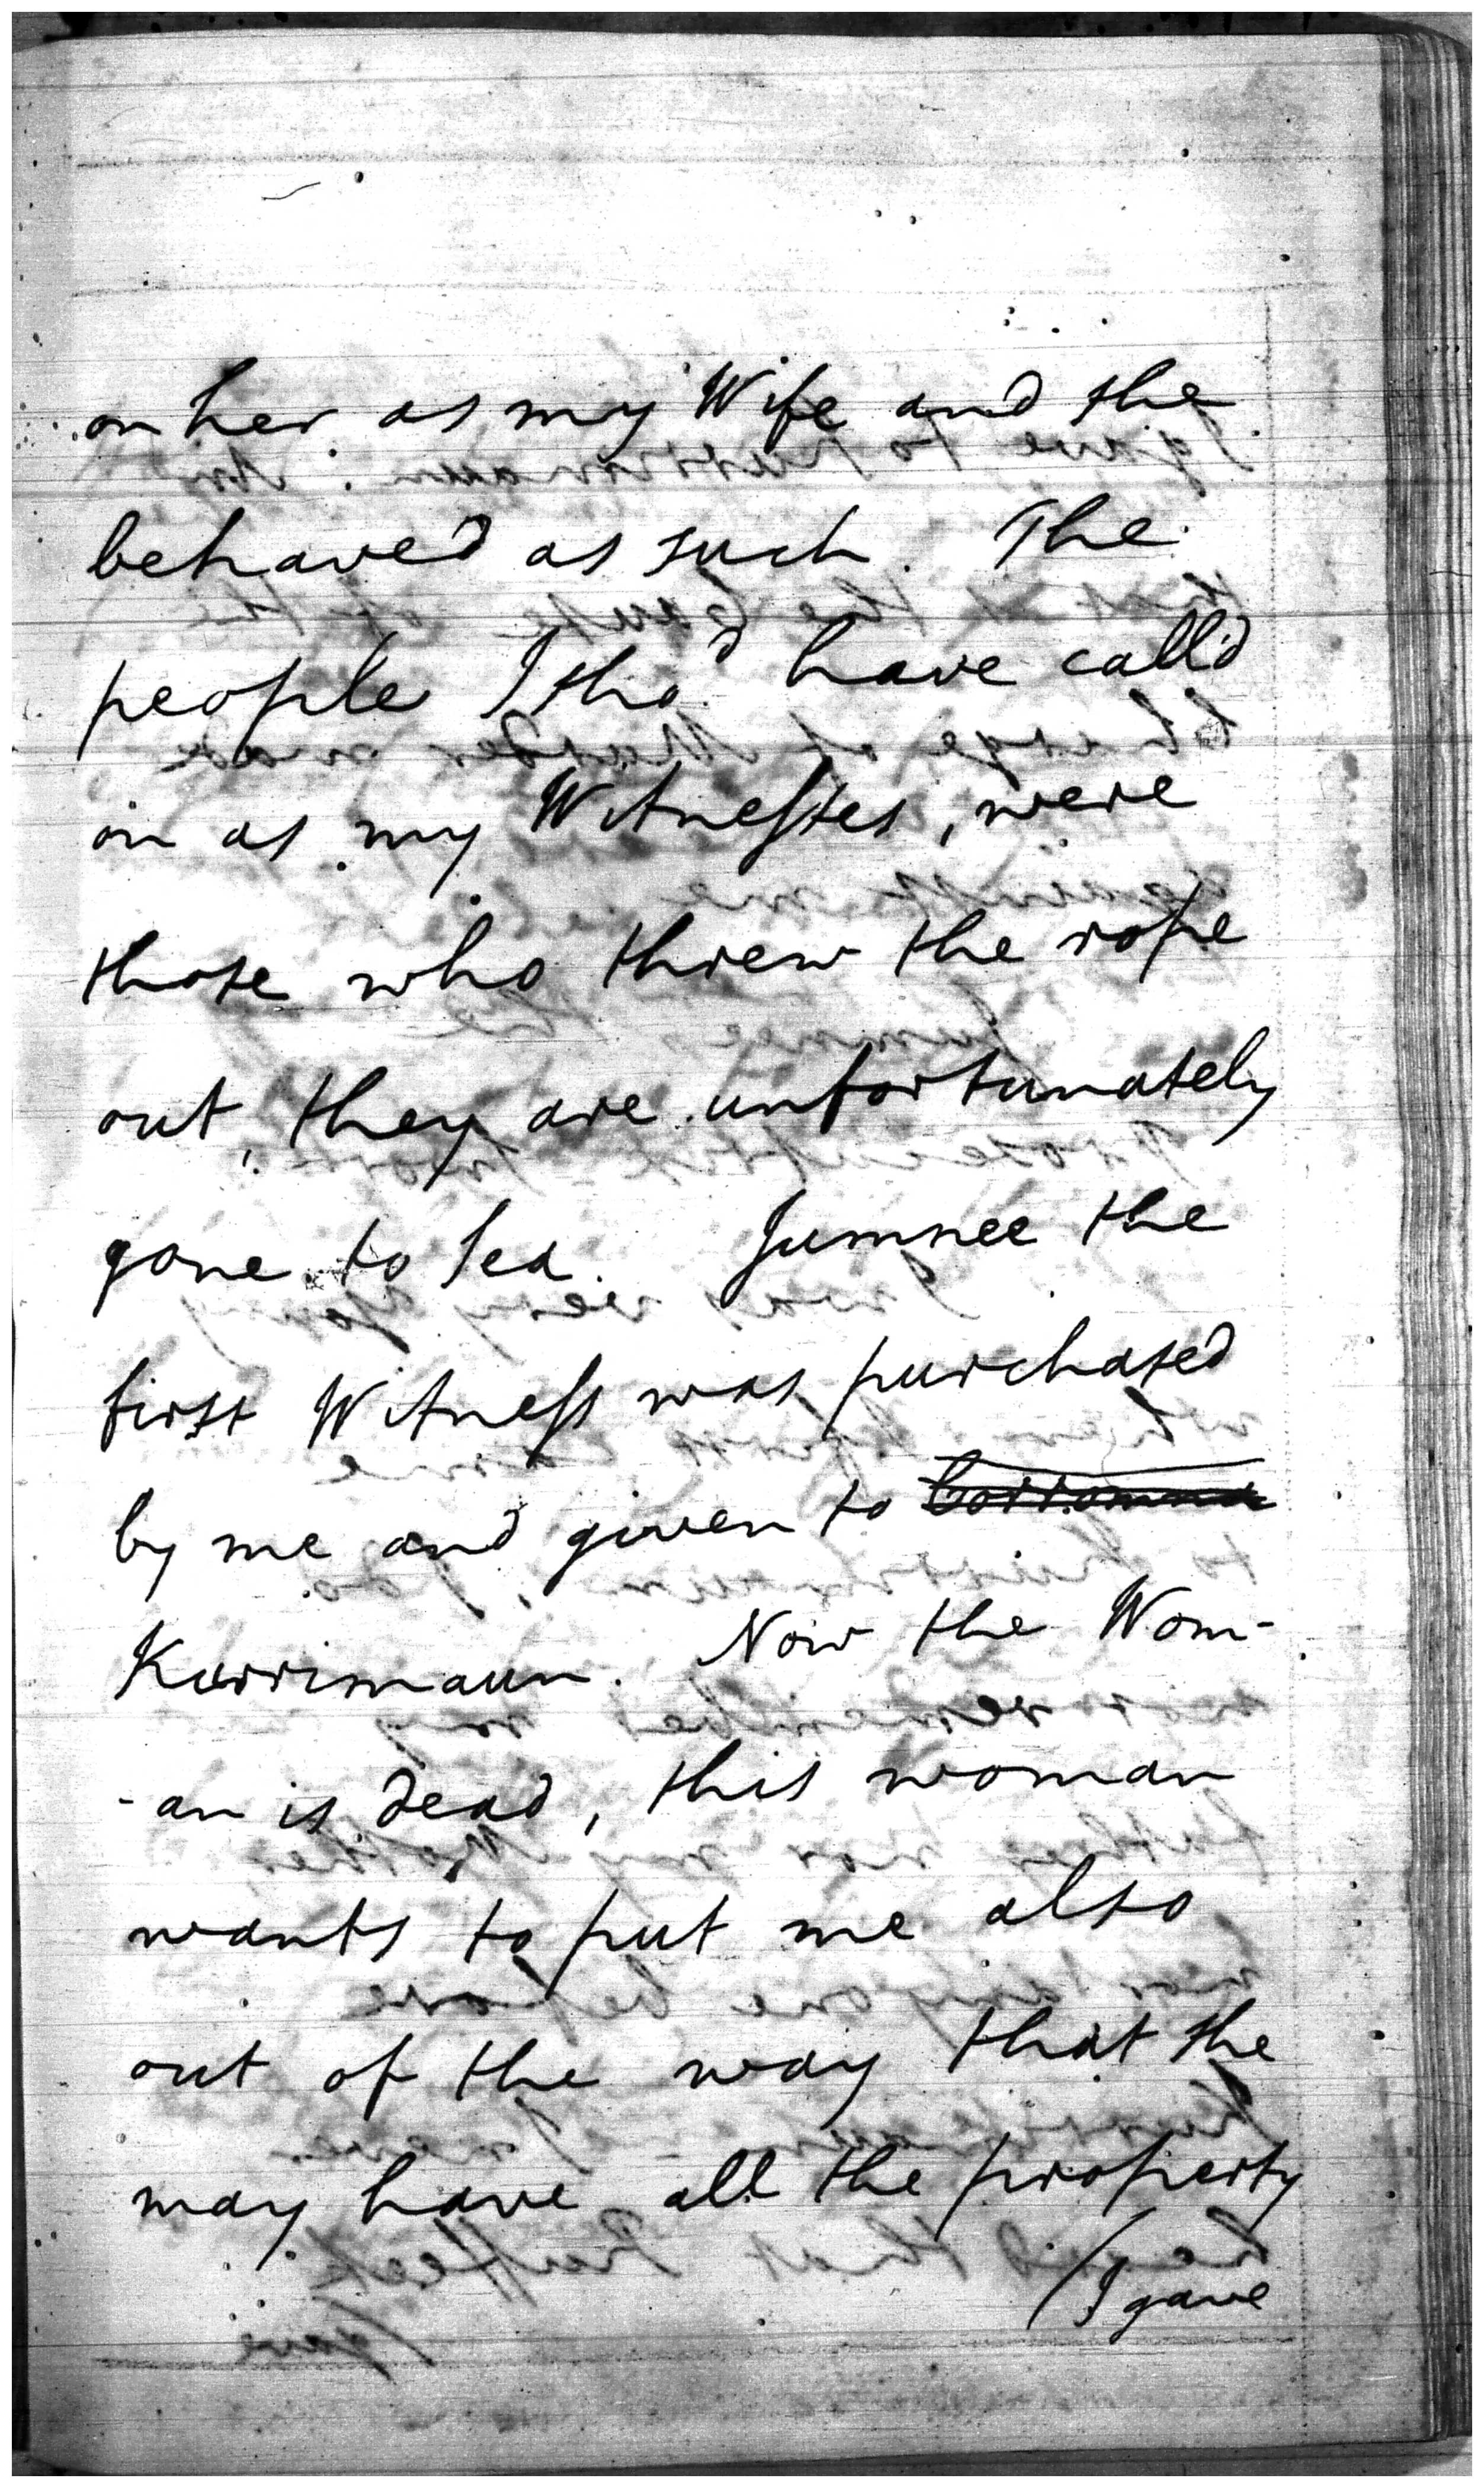 on her as my Wife and she
behaved as such. The
people I sho.d have call'd
on as my Witnesses, were
those who threw the rope
out, they are unfortunately
gone to Sea. Jumnee the
first Witness was purchased
by me and given to
Kurrimaun. Now the Wom-
-an is dead, this woman
wants to put me also
out of the way that she
may have all the property
(I gave